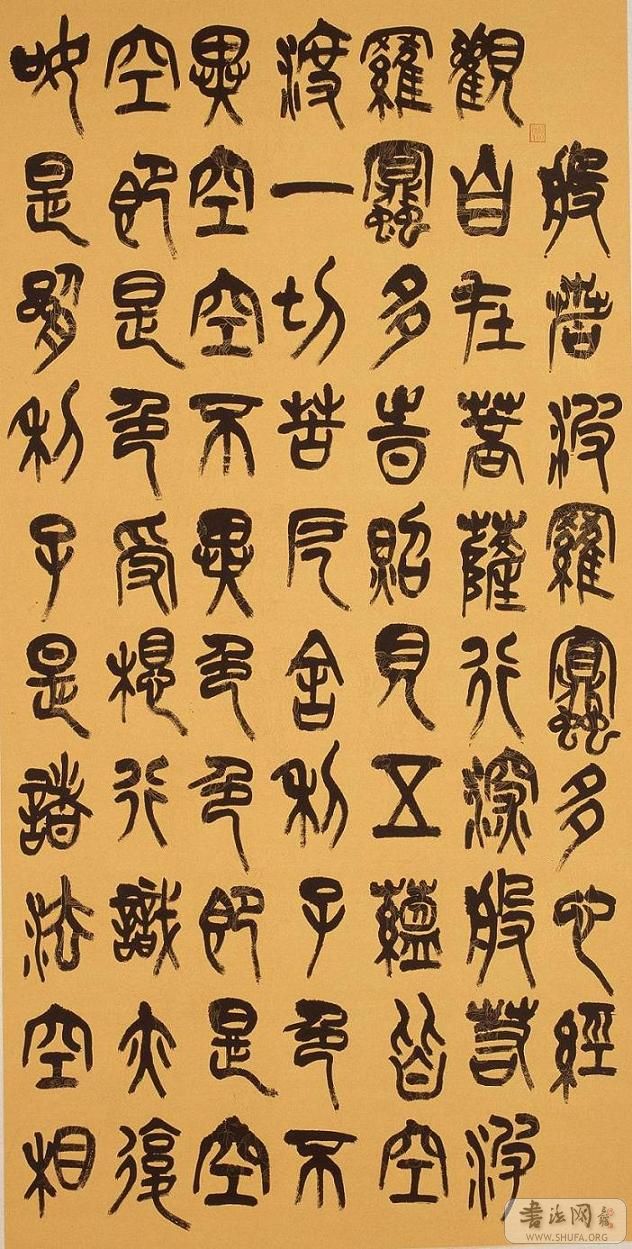 般若波羅蜜多心經
觀自在菩薩行深般若波
羅蜜多時照見五蘊皆空
渡一切苦厄舍利子色不
異空空不異色色即是空
空即是色受想行識亦復
如是舍利子是諸法空相
書法网
WWW.SHUFA.ORG